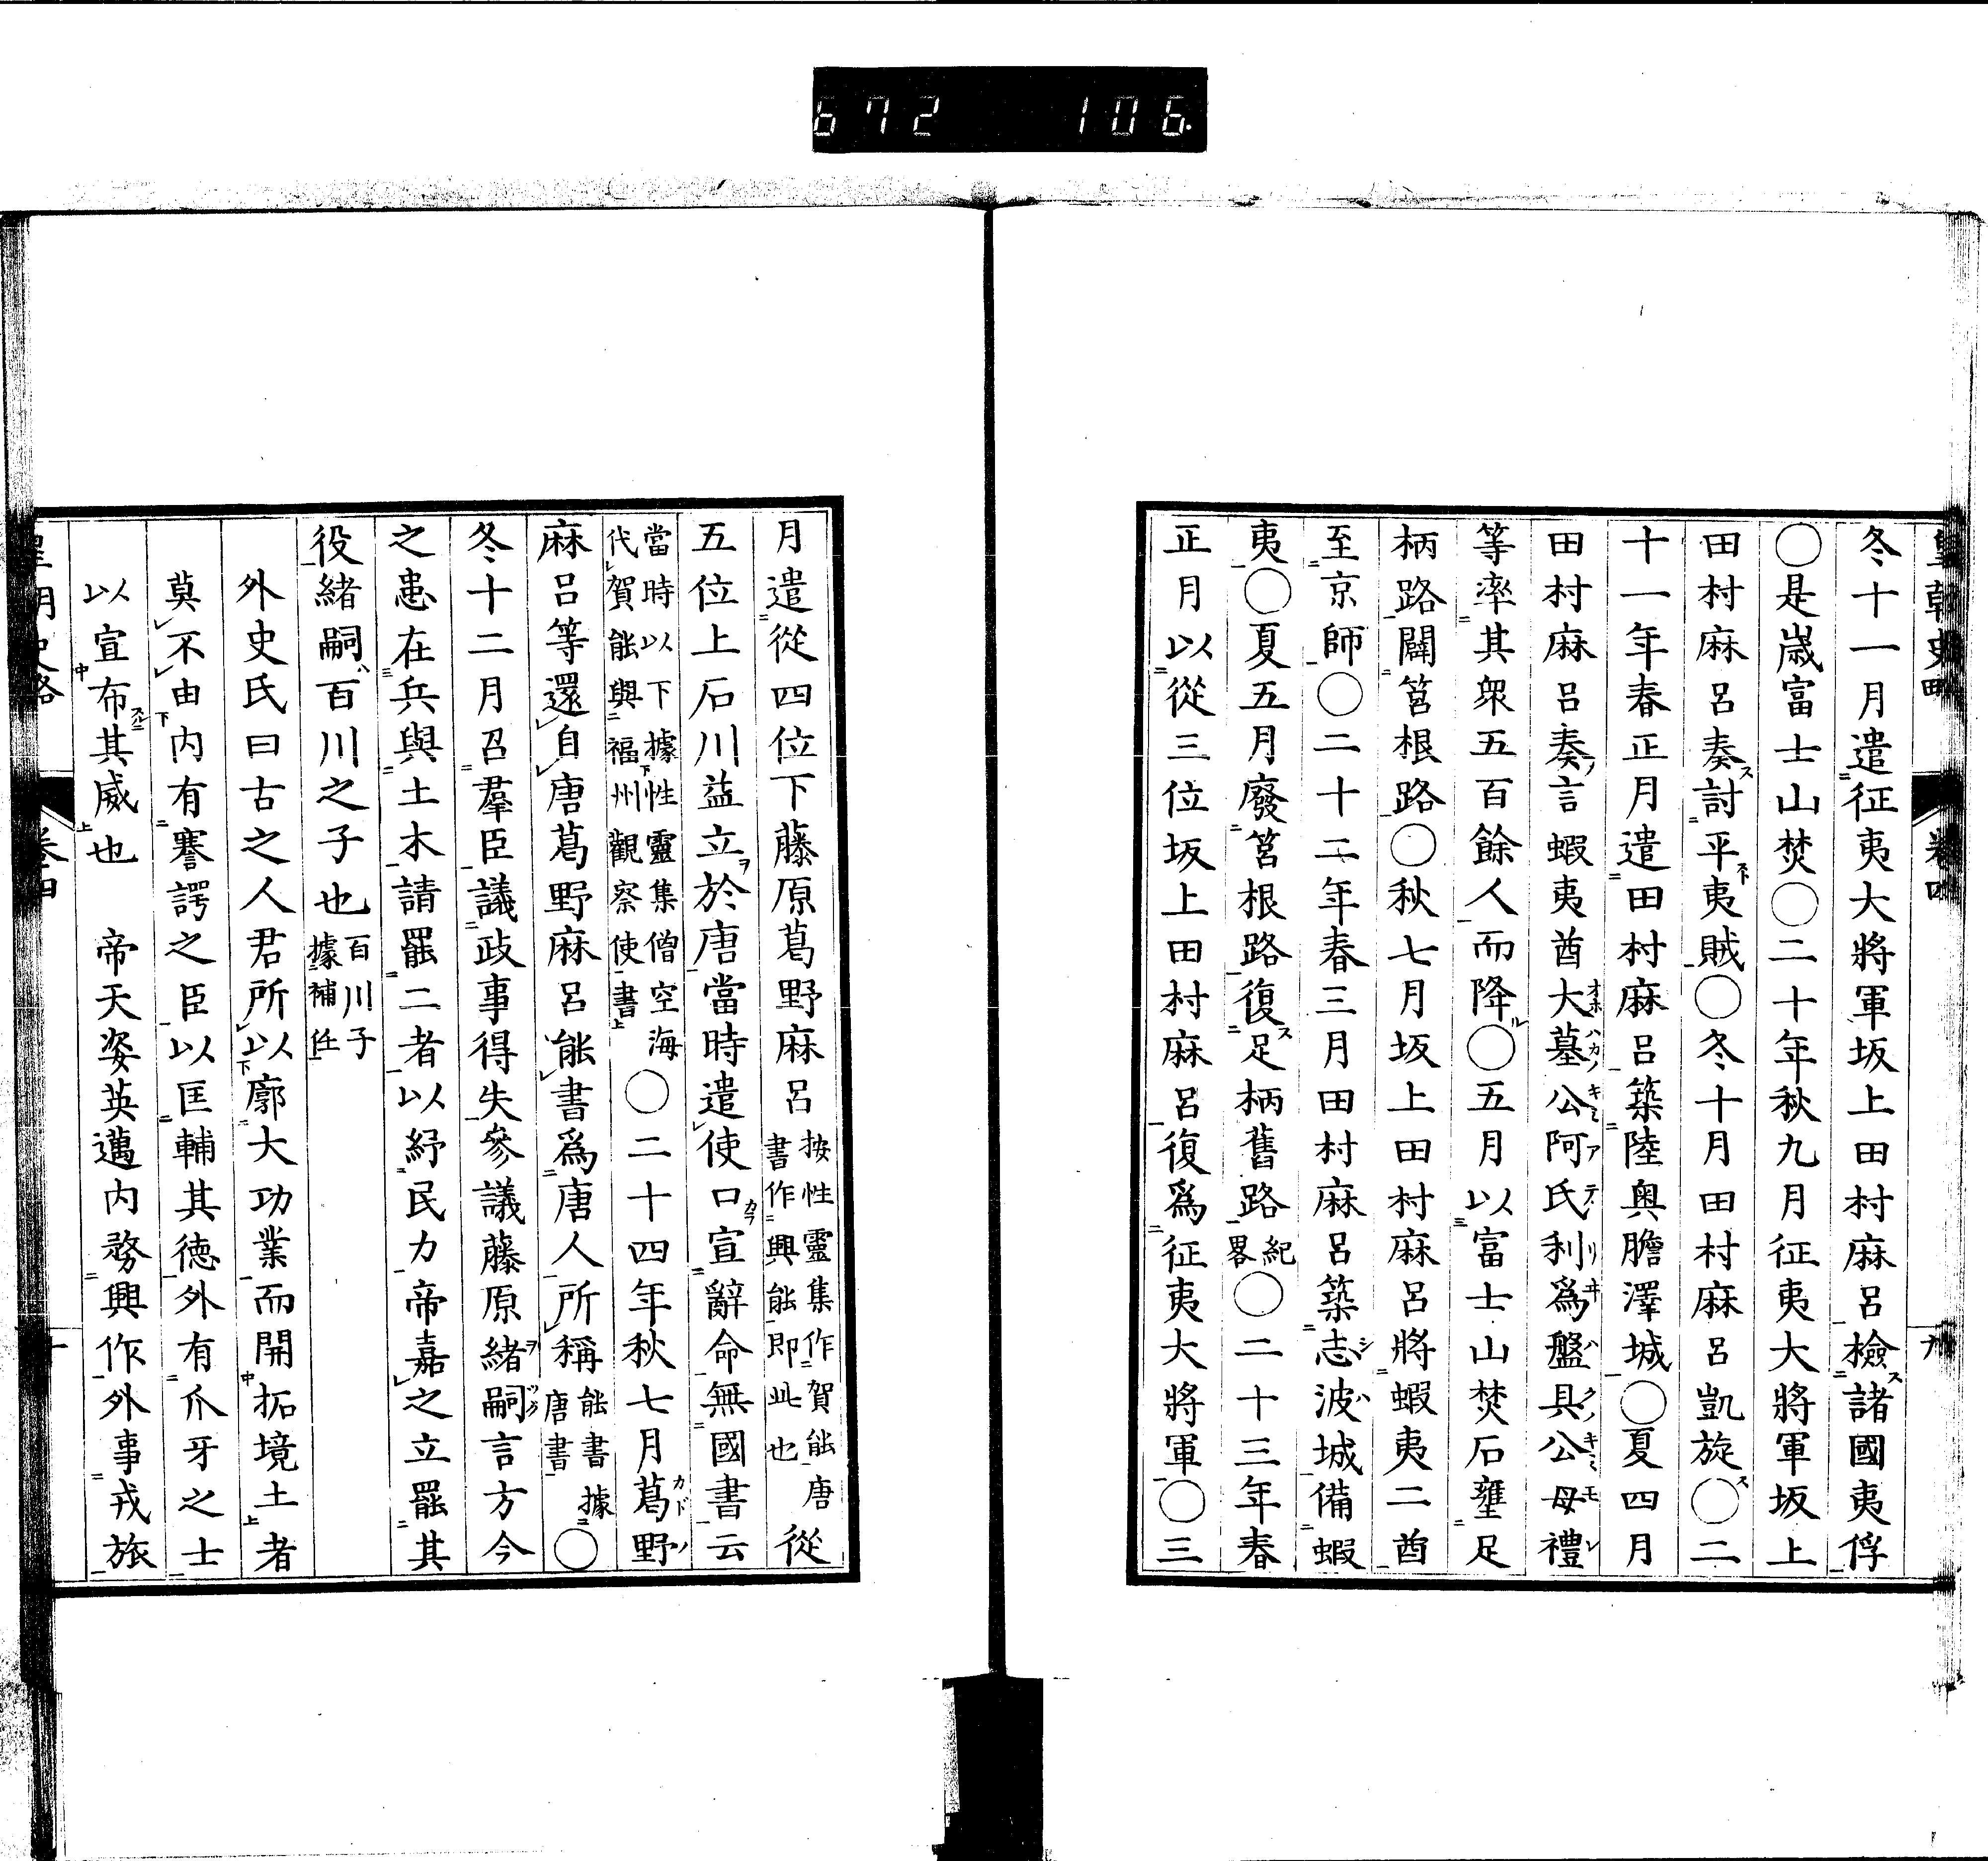 672 106.
皇朝史略 卷四 九
冬十一月遣征夷大將軍坂上田村麻呂檢諸國夷俘
○是歲富士山焚○二十年秋九月征夷大將軍坂上
田村麻呂奏討平夷賊○冬十月田村麻呂凱旋○二
十一年春正月遣田村麻呂築陸奧膽澤城○夏四月
田村麻呂奏言蝦夷酋大墓公阿氏利爲盤具公母禮
等率其衆五百餘人而降○五月以富士山焚石壅足
柄路闢筥根路○秋七月坂上田村麻呂將蝦夷二酋
至京師○二十二年春三月田村麻呂築志波城備蝦
夷○夏五月廢筥根路復足柄舊路紀畧○二十三年春
正月以從三位坂上田村麻呂復爲征夷大將軍○三
月遣從四位下藤原葛野麻呂按性靈集作賀能唐書作興能即此也從
五位上石川益立於唐當時遣使口宣辭命無國書云
當時以下據性靈集僧空海代賀能與福州觀察使書○二十四年秋七月葛野
麻呂等還自唐葛野麻呂能書爲唐人所稱能書據唐書○
冬十二月召羣臣議政事得失參議藤原緒嗣言方今
之患在兵與土木請罷二者以紓民力帝嘉之立罷其
役緒嗣百川之子也百川子據補任
外史氏曰古之人君所以廓大功業而開拓境土者
莫不由內有謇諤之臣以匡輔其德外有爪牙之士
以宣布其威也 帝天姿英邁內務興作外事戎旅
皇朝史略 卷四 十